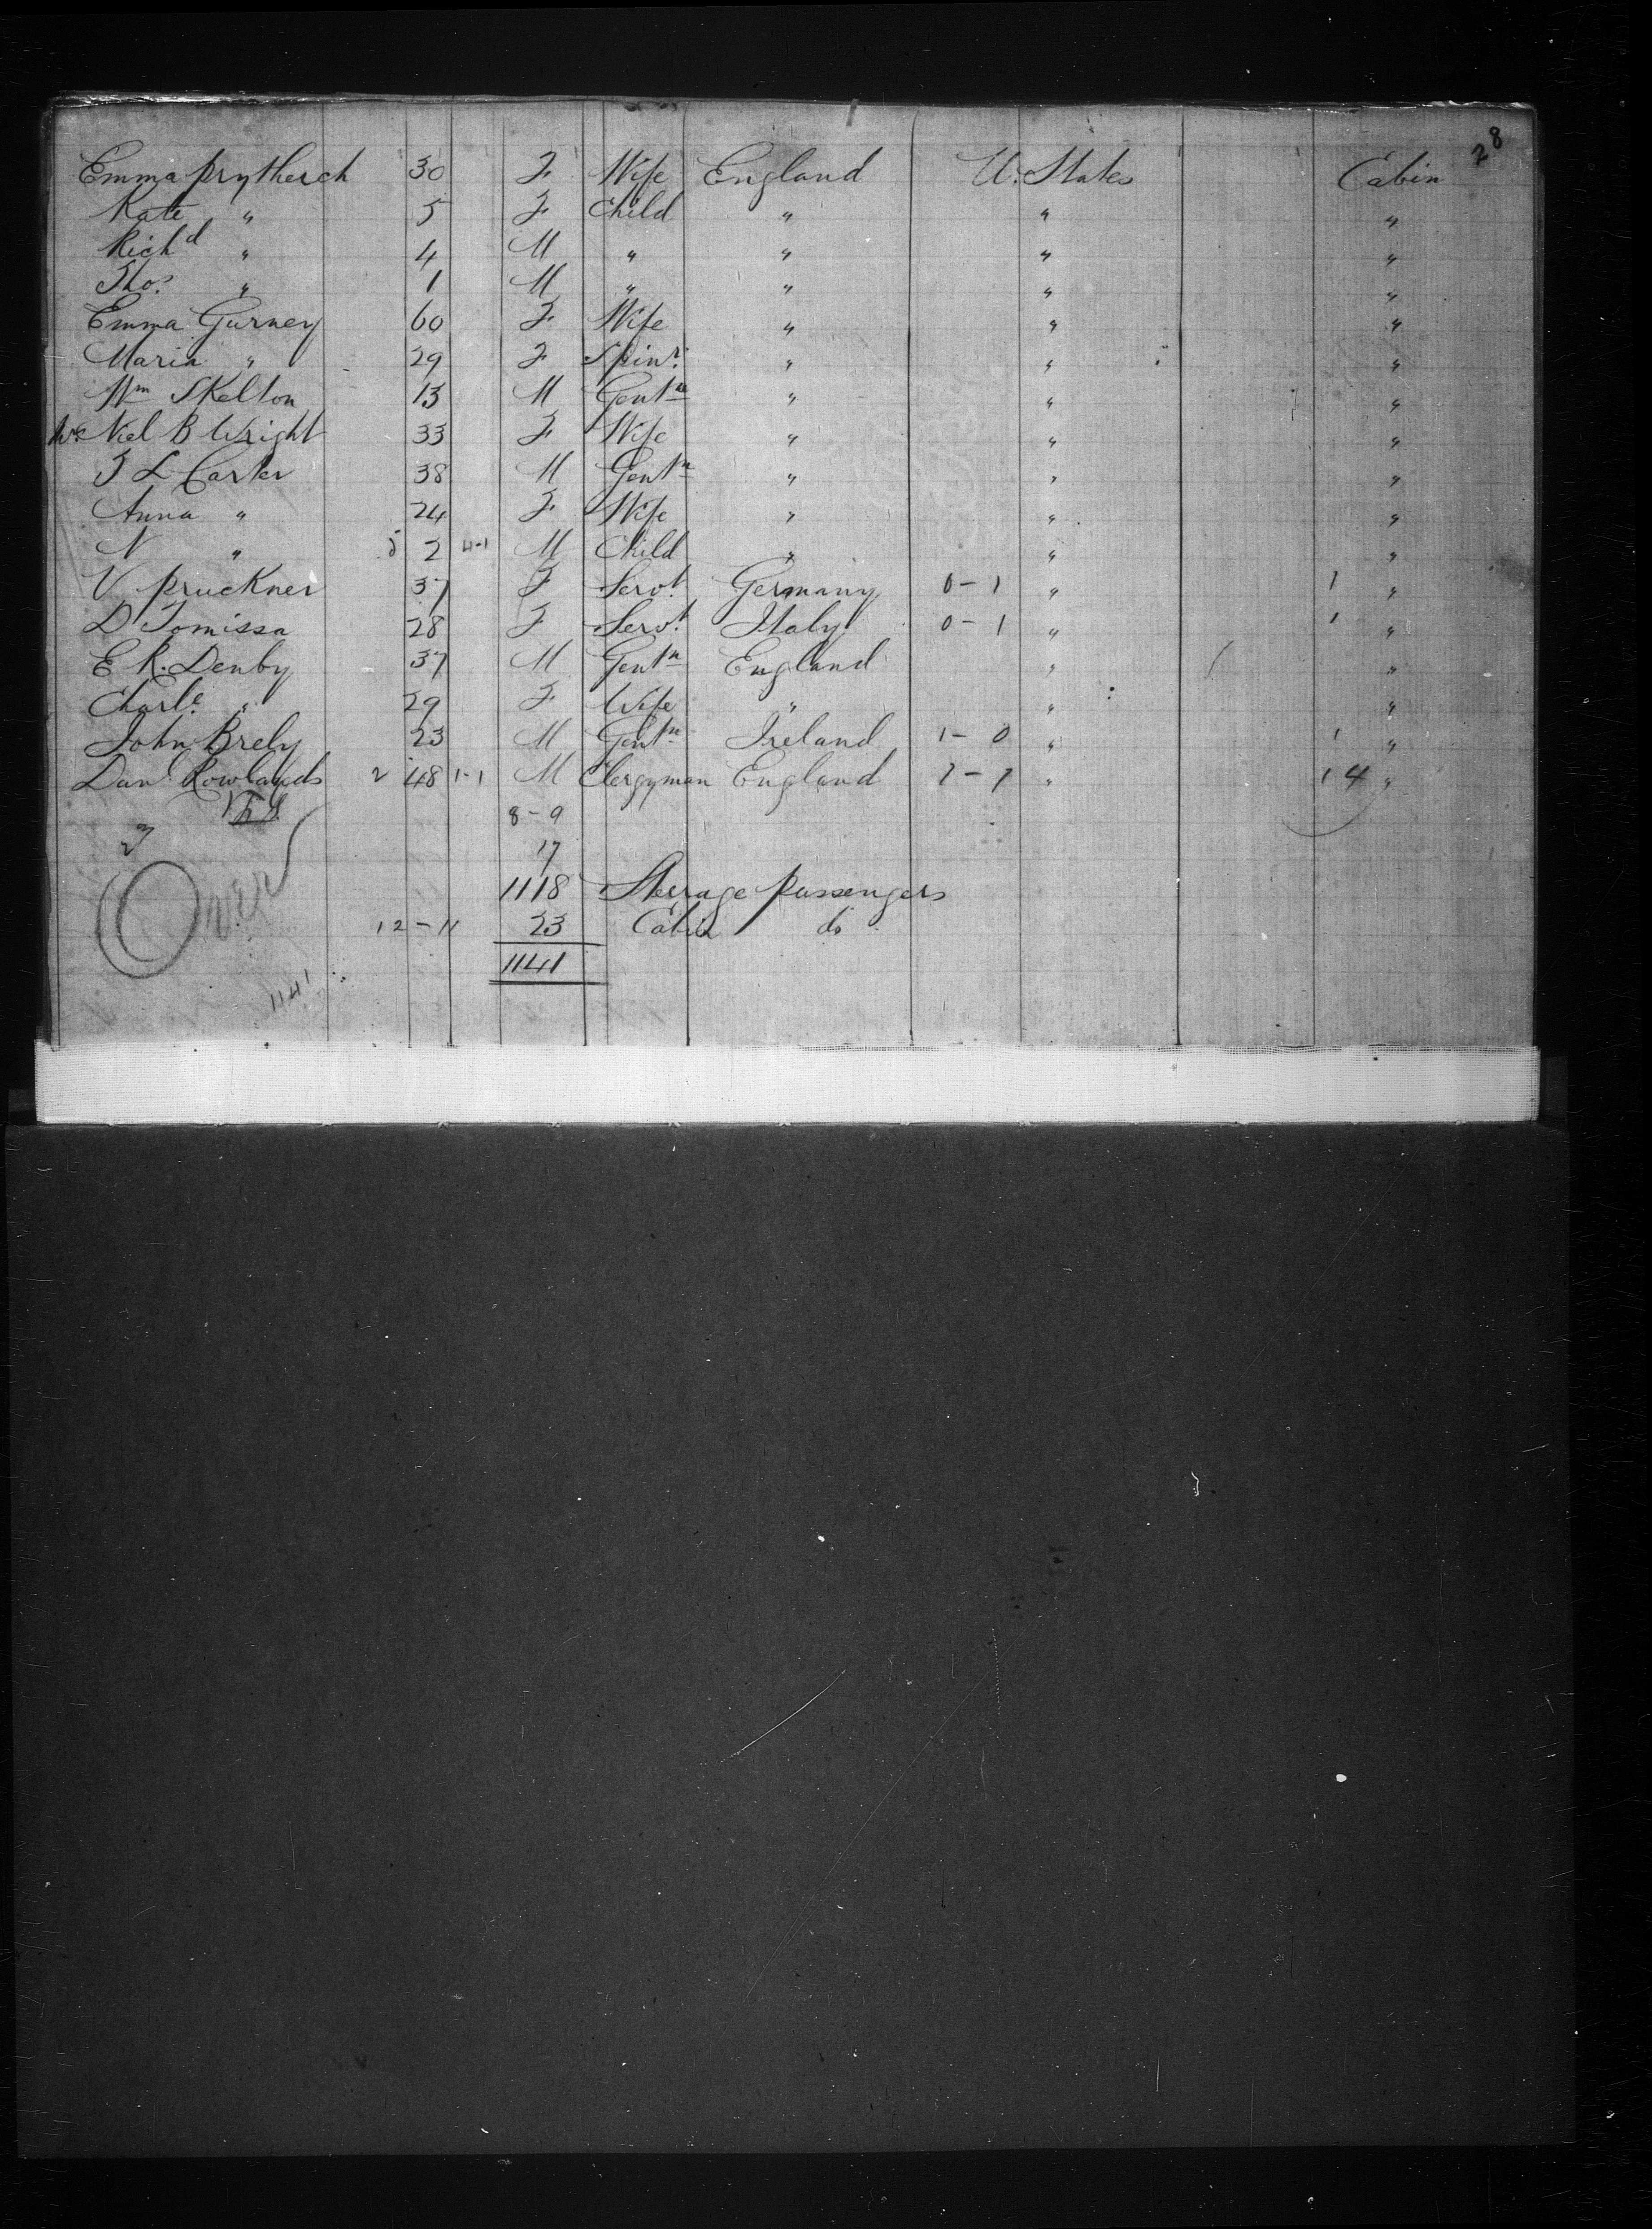 28
Emma Prytherch 30 F Wife England U. States Cabin
Kate " 5 F Child " " "
Richd " 4 M " " " "
Thos " 1 M " " " "
Emma Gurney 60 F Wife " " "
Maria " 29 F Spinr " " "
Wm Skelton 13 M Gentn " " "
Niel B Wright 33 F Wife " " "
T L Carter 38 M Gentn " " "
Anna " 24 F Wife " " "
N " 5 2 4-1 M Child " " "
V Pruckner 37 F Servt Germany 0-1 " 1 "
D Tomissa 28 F Servt Italy 0-1 " 1 "
E R. Denby 37 M Gentn England " "
Charle " 29 F Wife " " "
John Brely 23 M Gentn Ireland 1-0 " 1 "
Danl Rowlands 2 48 1-1 M Clergyman England 7-7 " 14 "
8-9
17
1118 Steerage Passengers
Over 12-11 23 Cabin do
1141
1141